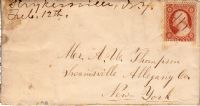 Strykersville, N.Y.
Feb. 12th.
Mr. A. W. Thompson
Swainsville Allegany Co.
New York